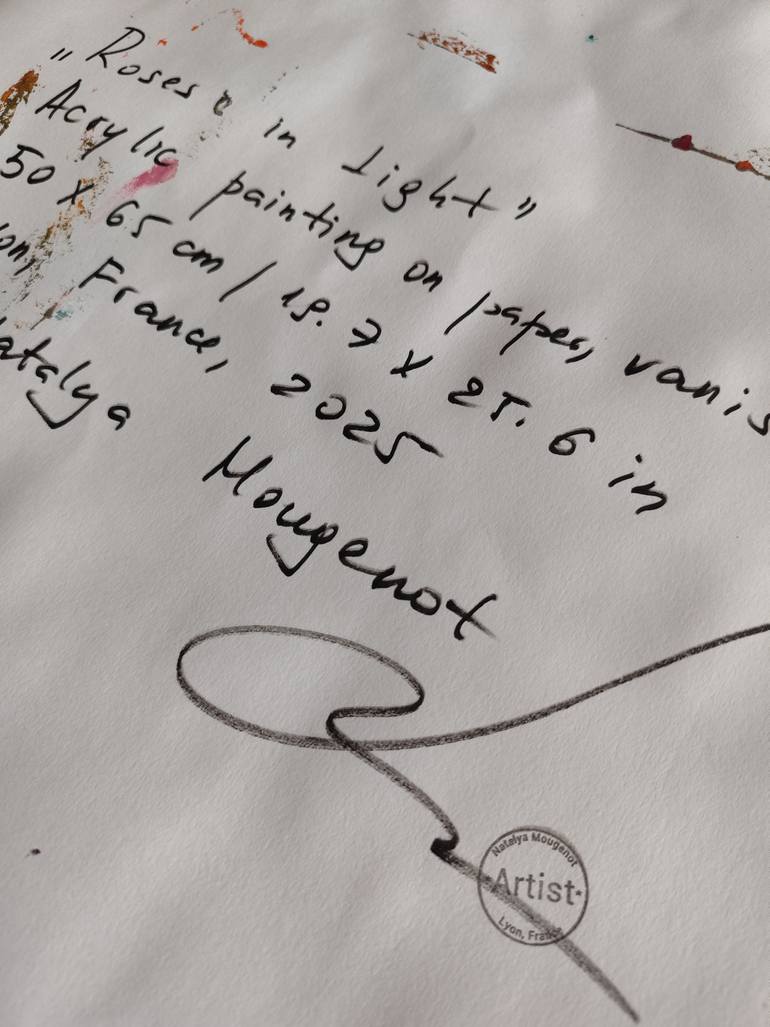 „Roses in Light”
Acrylic painting on paper, vanis
50 x 65 cm / 19.7 x 25.6 in
on, France, 2025
atalya Mougenot
Natalya Mougenot
Artist
Lyon, France